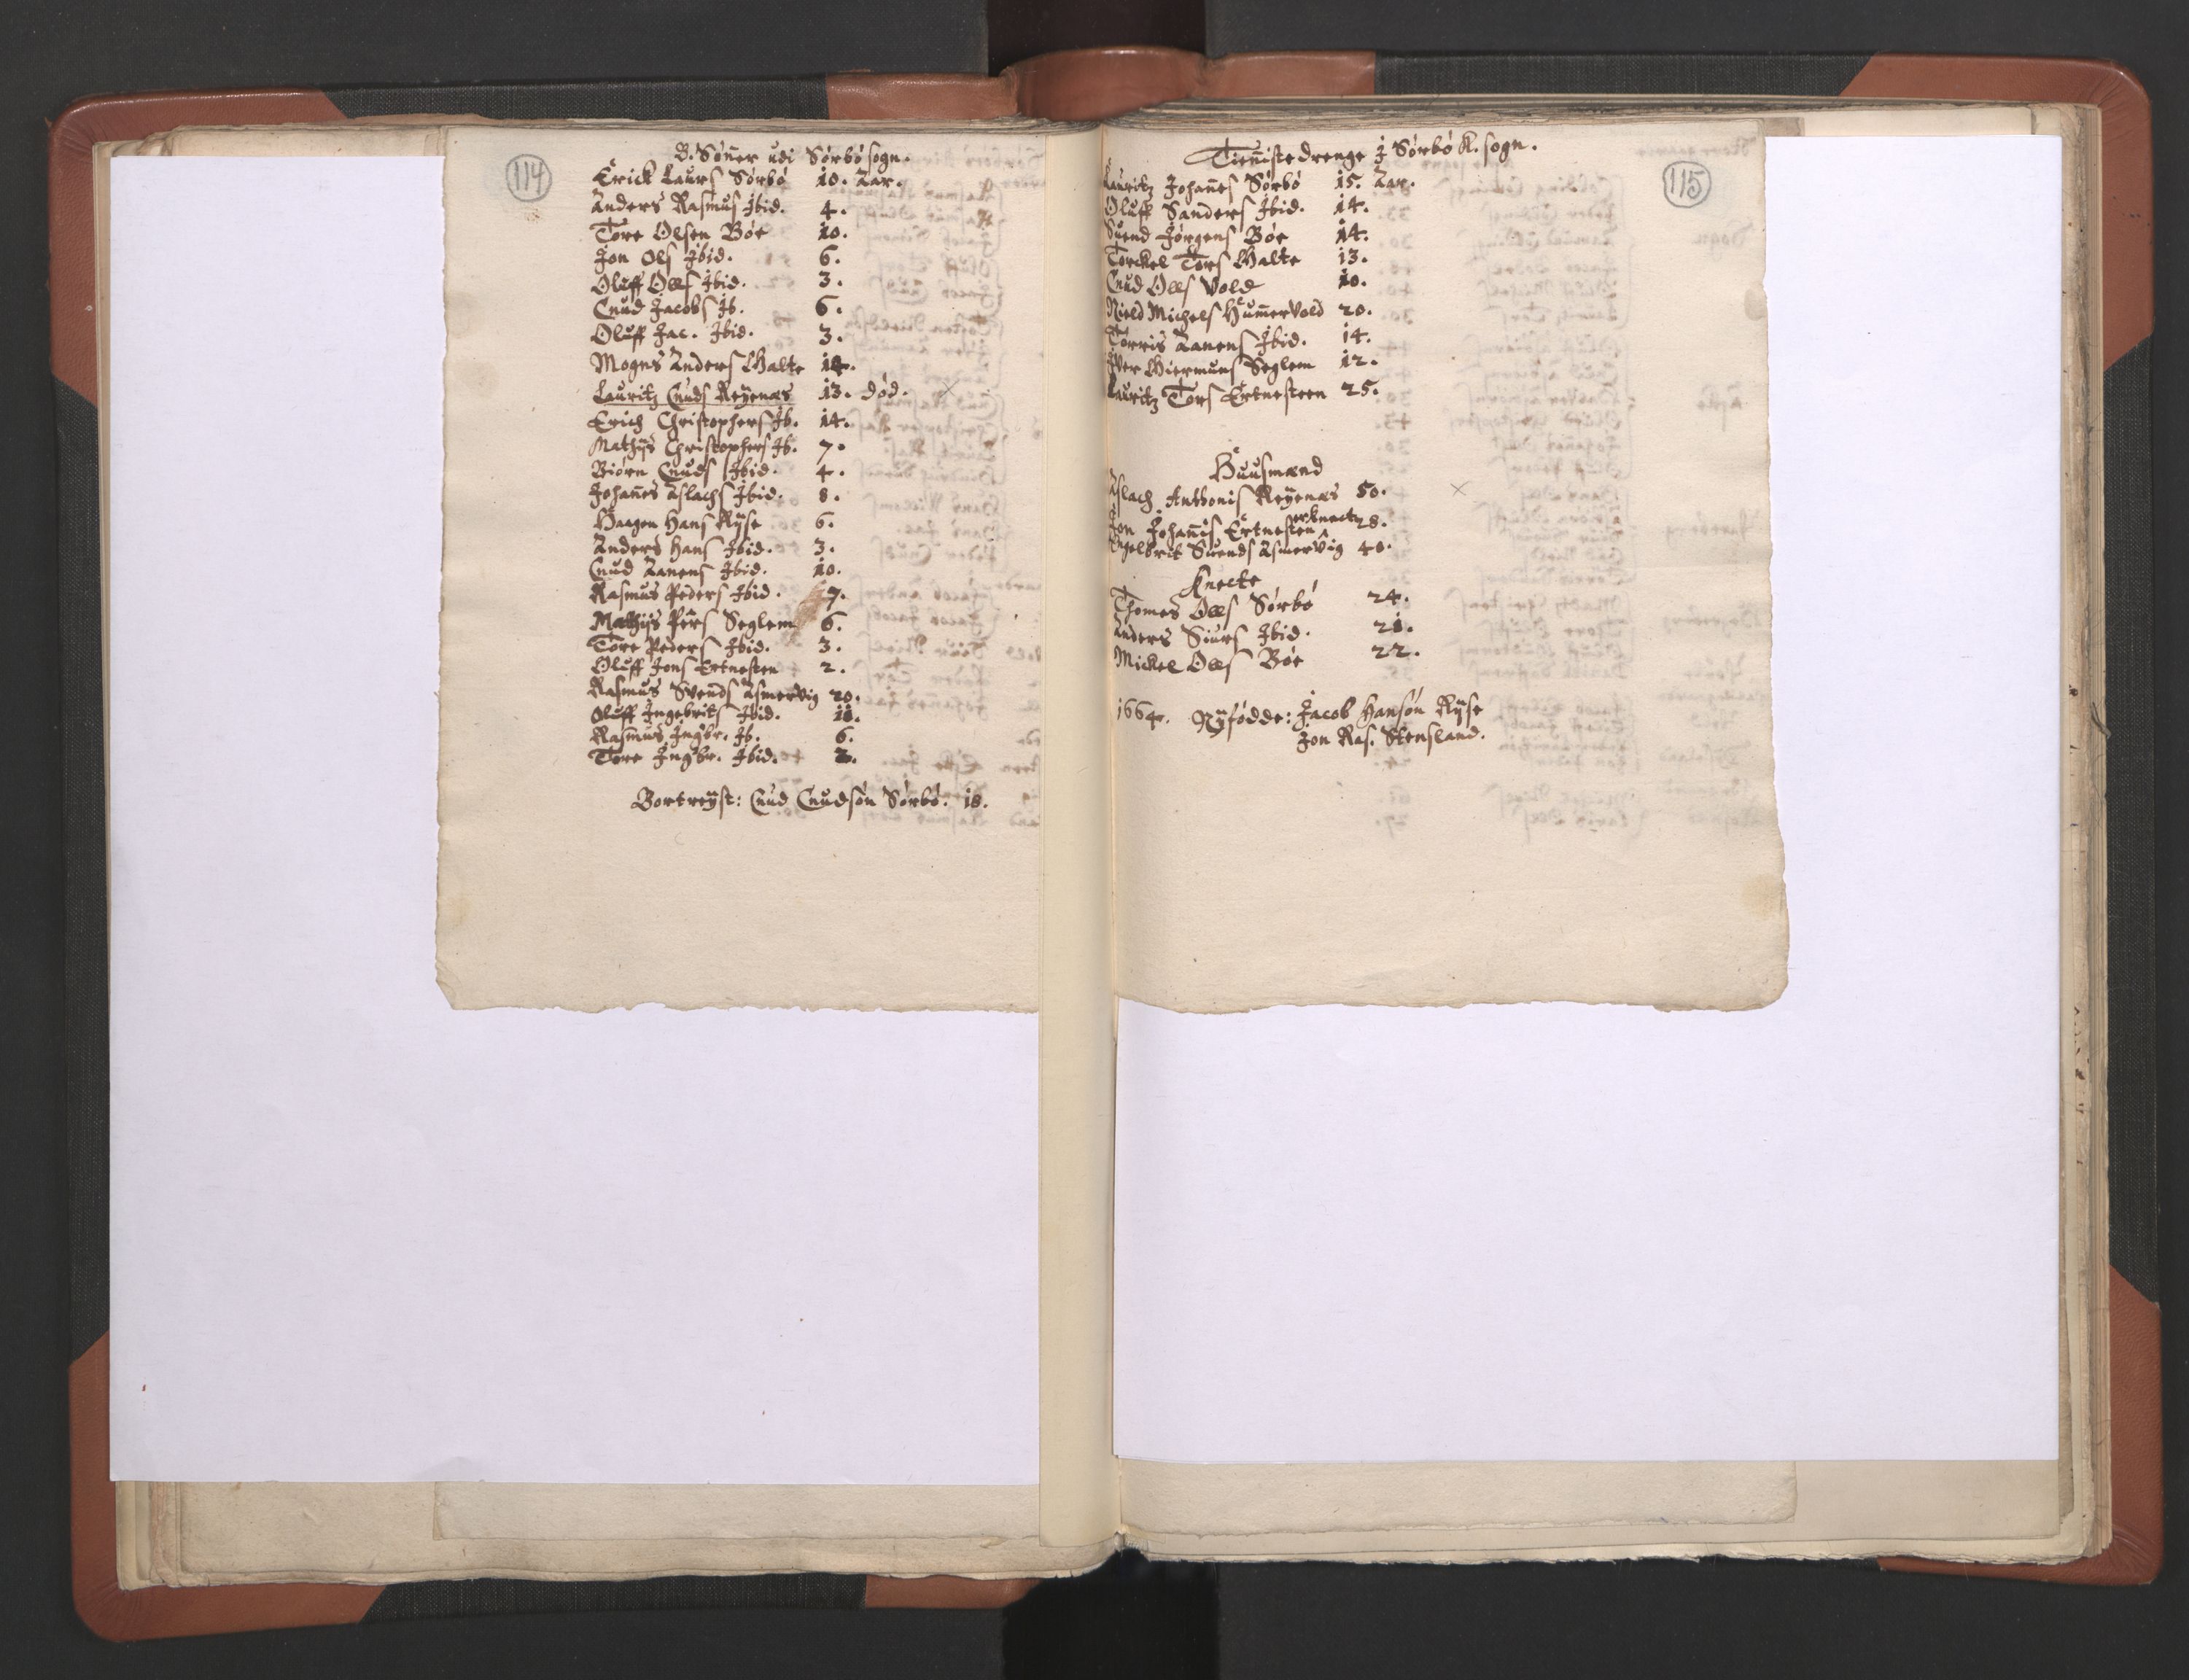 114
B. Sønner udi Sørbø sogn.
Erick Laurs Sørbø 10. Aar.
Anders Rasmus Ibid. 4.
Tore Olsen Bøe 10.
Jon Ols Ibid. 6.
Oluff Olls Ibid. 3.
Cnud Jacobs Ib. 6.
Oluff Jac. Ibid. 3.
Mogns Anders Halte
Lauritz Cnuds Reÿenæs 13. død.
Erich Christophers Ib. 14.
Mathÿs Christophers Ib. 7.
Biørn Cnuds Ibid. 4.
Johanes Aslachs Ibid. 8.
Haagen Hans Rÿse 6.
Anders Hans Ibid. 3.
Cnud Aanens Ibid. 10.
Rasmus Peders Ibid. 7.
Mathÿs Pers Seglem 6.
Tore Peders Ibid. 3.
Oluff Jons Ertnesten 2.
Rasmus Svends Asmervig 20.
Oluff Ingebrits Ibid.
Rasmus Ingbr. Ib. 6.
Tore Ingbr. Ibid.
Bortreÿst: Cnud Cnudsøn Sørbø. 18.
115
Tienistedrenge J Sørbø K. sogn.
Lauritz Johanes Sørbø 15. Aar.
Oluff Sanders Ibid. 14.
Suend Jørgens Bøe 14.
Torckel Tors Halte 13.
Cnud Olls Vold 10.
Nield Michels Humervold 20.
Torris Aanens Ibid. 14.
Iver Hiermuns Seglem 12.
Lauritz Tors Ertnesteen 25.
Huusmænd
Aslach Anthonis Reÿenæs 50.
Jon Johanis Ertnesten 28.
Engelbrit Suends Asmervig 40.
Knecte
Thomes Olls Sørbø 24.
Anders Siurs Ibid. 21.
Mickel Olls Bøe 22.
1664. Nÿfødde: Jacob Hansøn Rÿse
Jon Ras. Stensland.